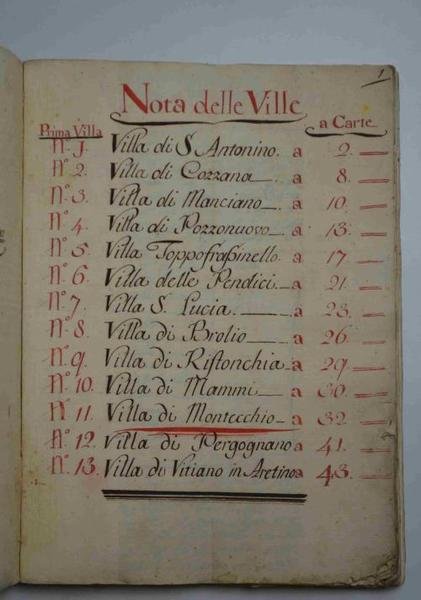 1
Nota delle Ville
Prima Villa a Carte
N.º 1. Villa di S. Antonino. a 2.
N.º 2. Villa di Cozzana a 8.
N.º 3. Villa di Manciano a 10.
N.º 4. Villa di Pozzonuovo a 13.
N.º 5. Villa Toppofraſsinello. a 17.
N.º 6. Villa delle Pendici a 21.
N.º 7. Villa S. Lucia. a 23.
N.º 8. Villa di Brolio a 26.
N.º 9. Villa di Riſtonchia a 29.
N.º 10. Villa di Mammi a 30.
N.º 11. Villa di Montecchio a 32.
N.º 12. Villa di Pergognano a 41.
N.º 13. Villa di Vitiano in Aretino a 43.